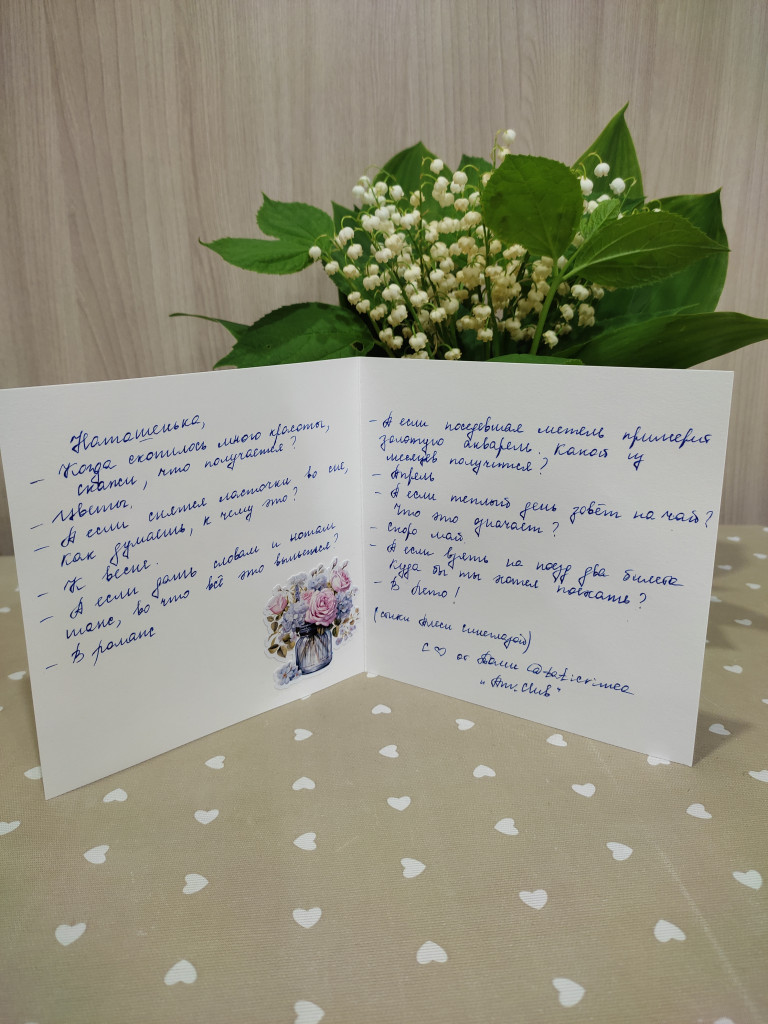 Наташенька,
- Когда скопилось много красоты,
скажи, что получается?
- Цветы.
- А если снятся ласточки во сне,
как думаешь, к чему это?
- К весне.
- А если дать словам и нотам
шанс, во что всё это выльется?
- В романс
- А если поседевшая метель примерит
золотую акварель. Какой из
месяцев получится?
- Апрель
- А если теплый день зовёт на чай?
Что это означает?
- Скоро май.
- А если взять на поезд два билета
Куда бы ты хотел поехать?
- В Лето!
(стихи Алеси Синеглазой)
С ♡ от Тани @tati.crimea
"Am.Club"